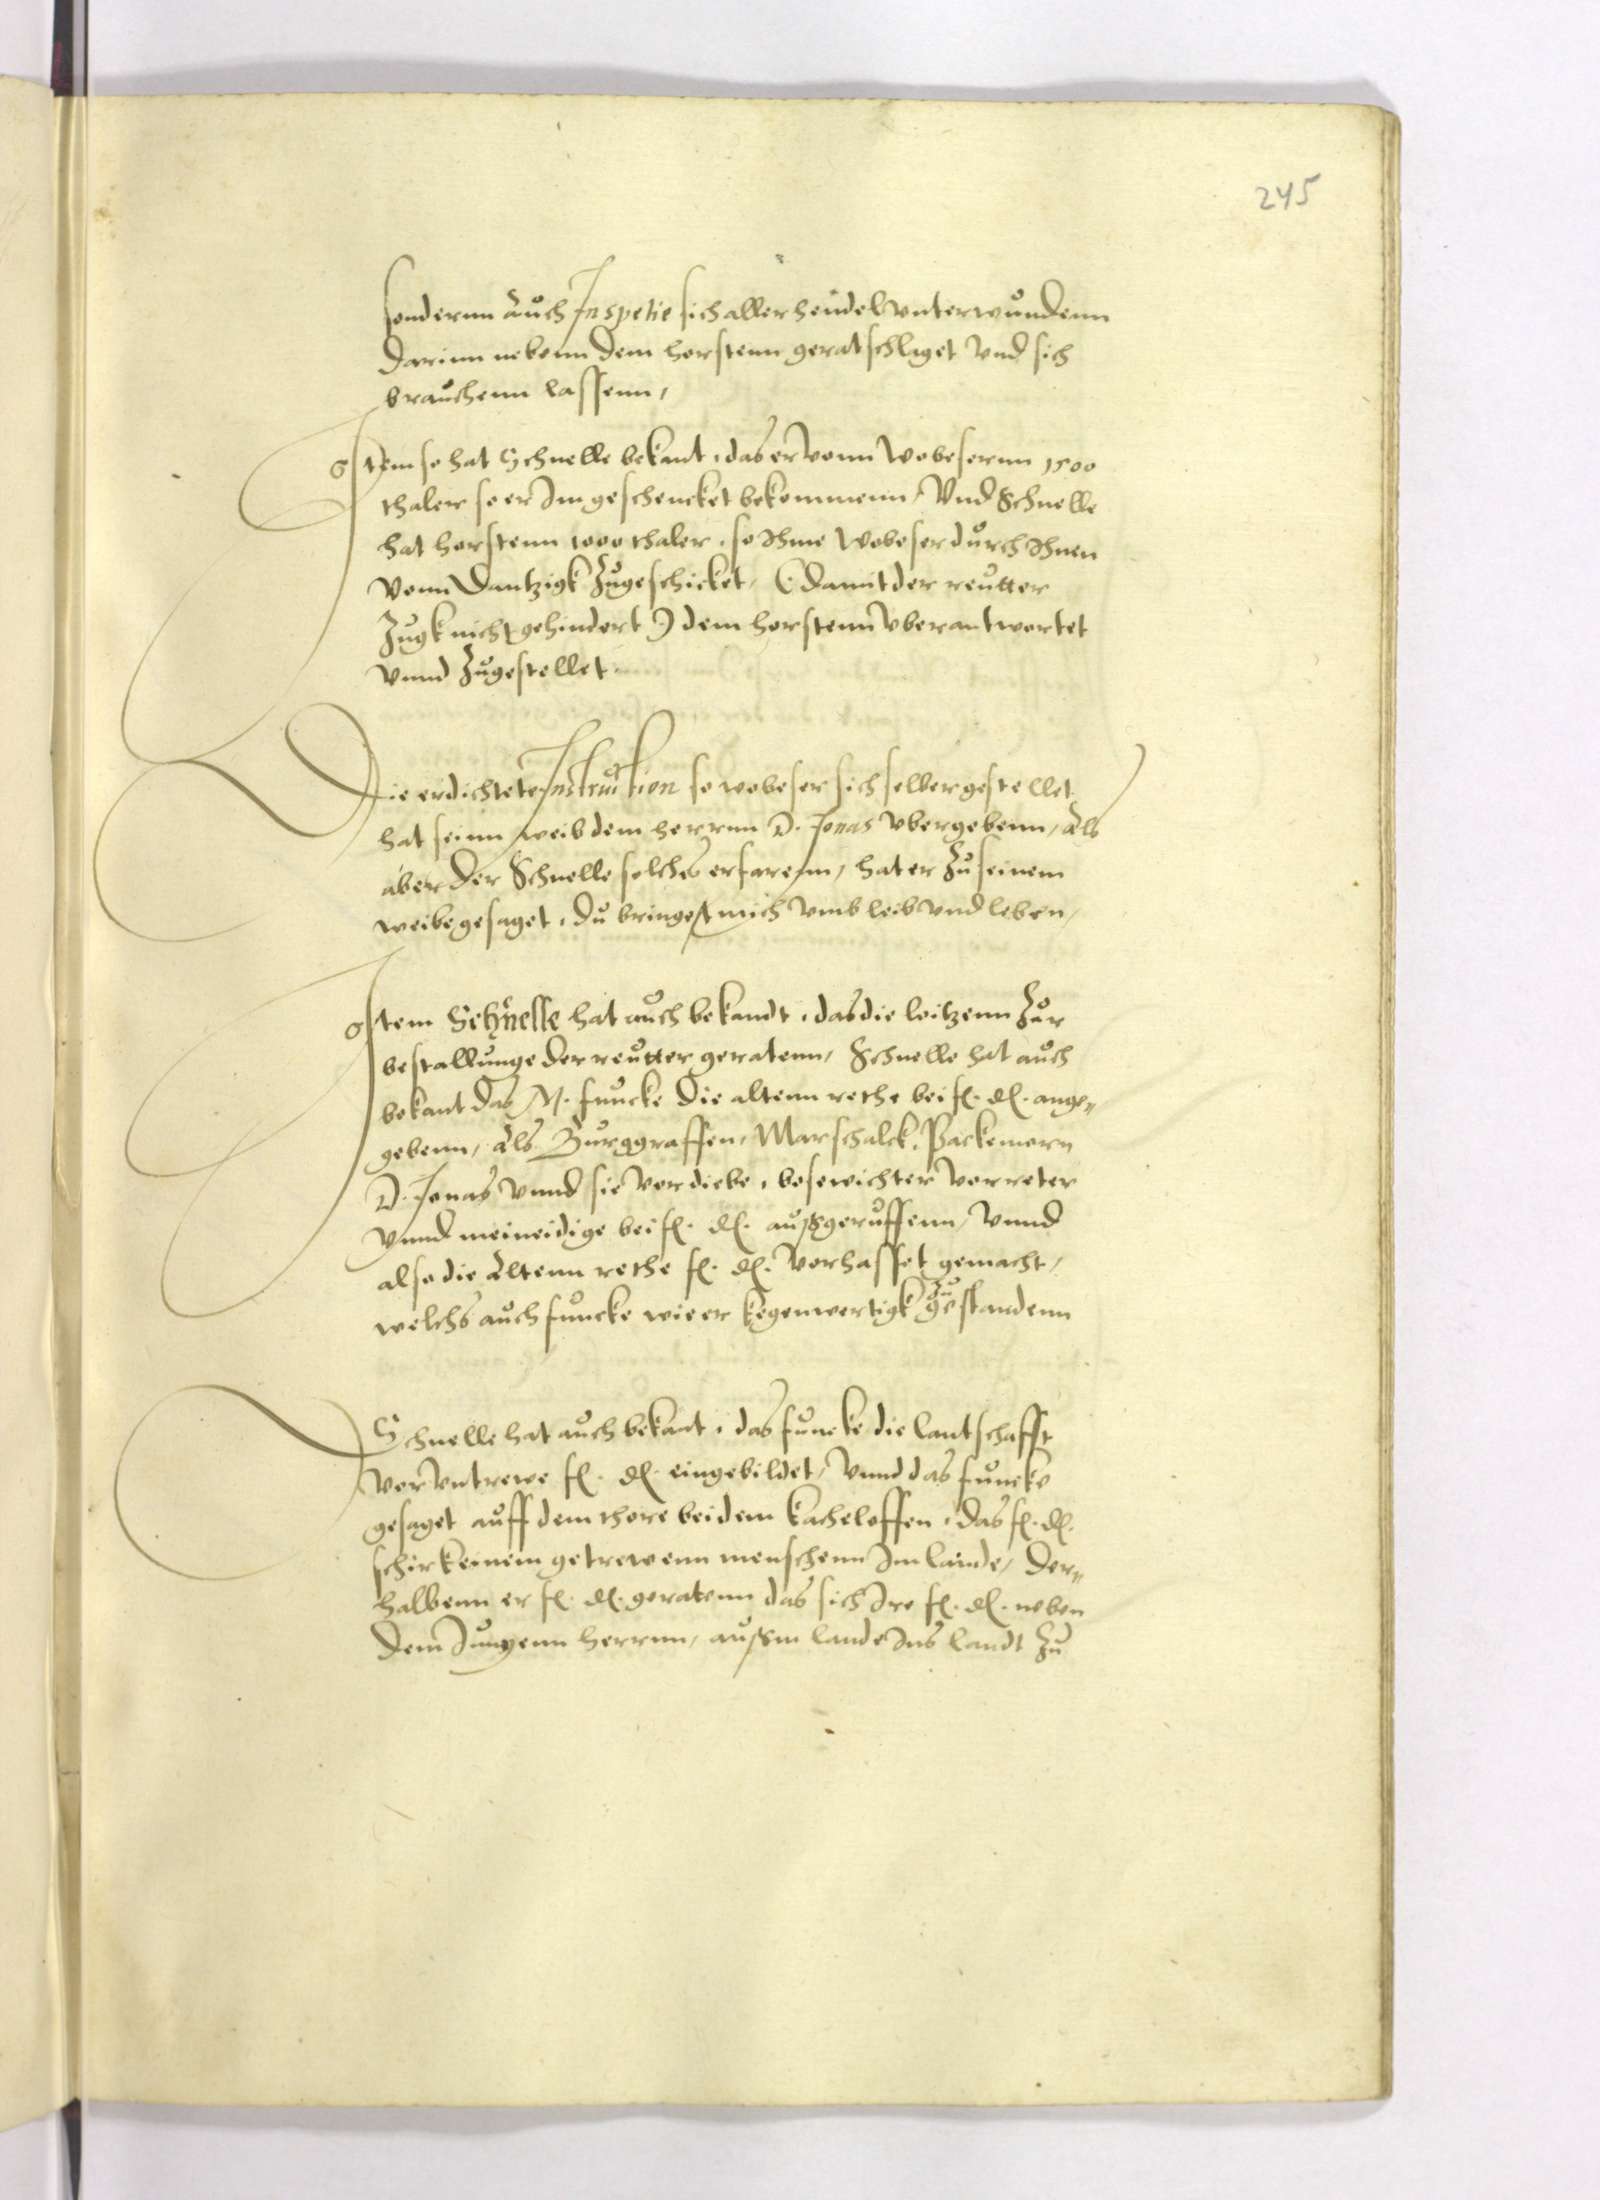 245
sondernn auch Inspetie sich aller hendel vnterwundenn
darinn nebenn dem horstenn geratschlaget vnd sich
brauchenn lassenn,
Item so hat Schnelle bekant, das er vonn Wobesernn 1500
thaler so er Im geschencket bekommenn, Vnd Schnelle
hat horstenn 1000 thaler, so Ihme Wobeser durch Ihnen
vonn Dantzigk zugeschicket, (: damit der reutter
zugk nicht gehindert :) dem horstenn vberantwortet
vnnd zugestellet.
Die erdichtete Instruction so wobeser sich selber gestellet
hat seinn weib dem herrnn D. Jonas vbergebenn, Als
aber der Schnelle solches erfarenn, hat er zu seinem
weibe gesaget, du bringest mich vmb leib vnd leben,
Item Schnelle hat auch bekandt, das die leitzenn zur
bestallunge der reutter geratenn, Schnelle hat auch
bekant das M. funcke die altenn rethe bei f. d. ange„
gebenn, Als Burggraffen, Marschalck, Packemorn
D. Jonas vnnd sie vor diebe, bosewichter vorreter
vnnd meineidige bei f. d. außgeruffenn, vnnd
also die Altenn rethe f. d. vorhasset gemacht,
welchs auch funcke wie er kegenwertigk zu gestandenn
Schnelle hat auch bekant, das funcke die lantschafft
vor vntrewe f. d. eingebildet, vnnd das funcke
gesaget auff dem thore bei dem kacheloffen, das f. d.
schir keinem getrewenn menschenn Im lande, der„
halbenn er f. d. geratenn das sich Ire f. d. neben
dem Jungenn herrnn, außm lande Ins landt zu